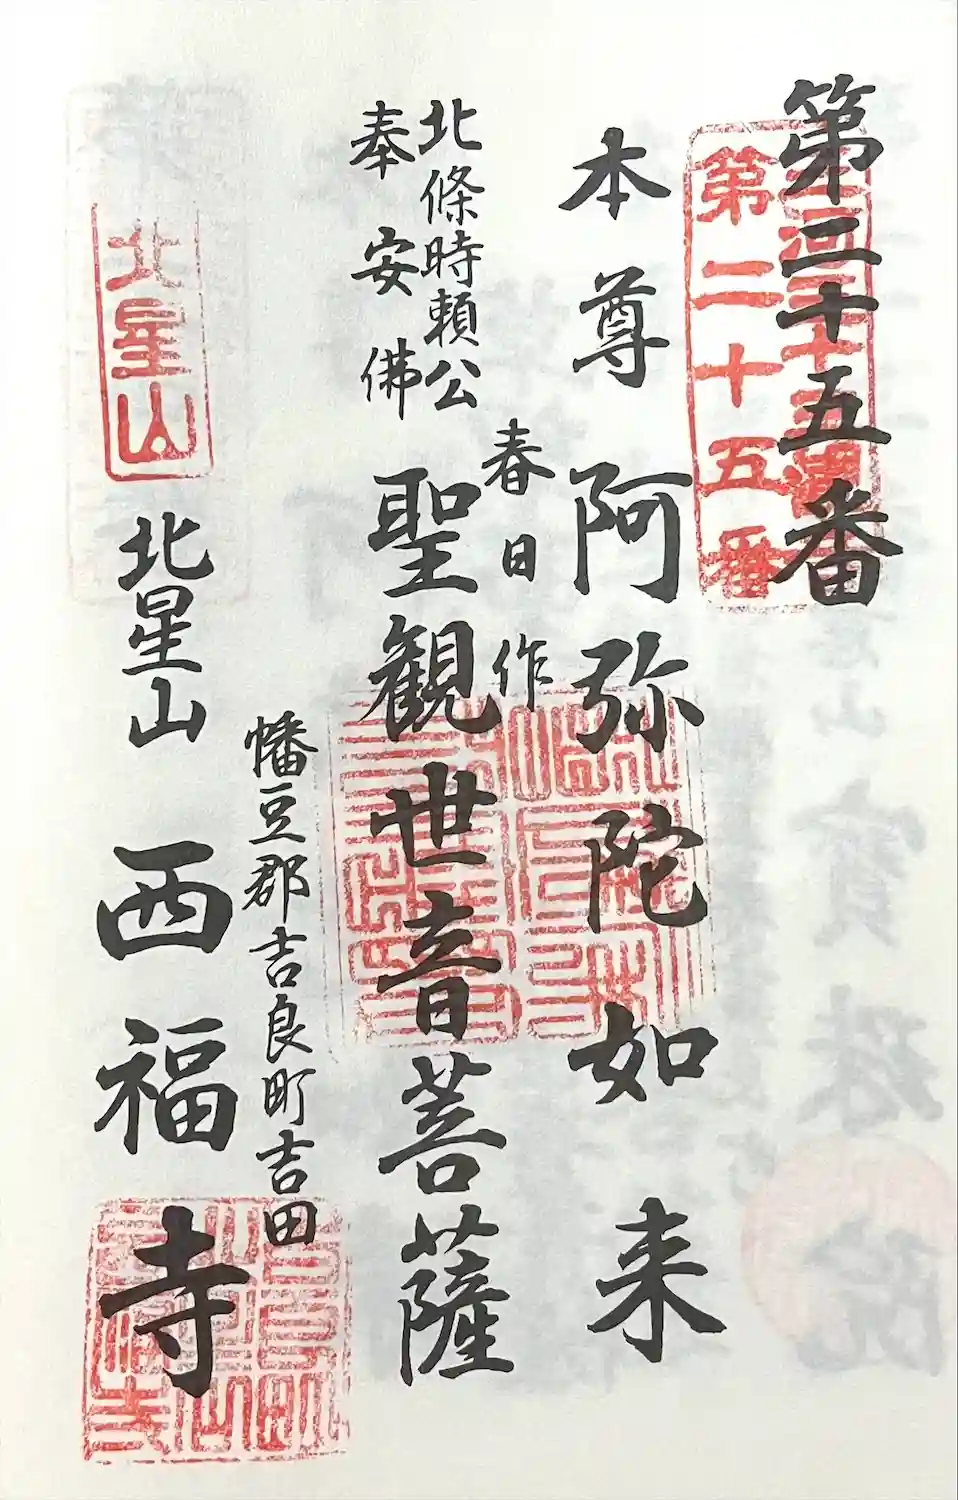 第二十五番
三河三十三観音
第二十五番
本尊阿弥陀如来
春日作
北條時頼公
奉安佛
聖観世音菩薩
幡豆郡吉良町吉田
北星山
北星山西福寺